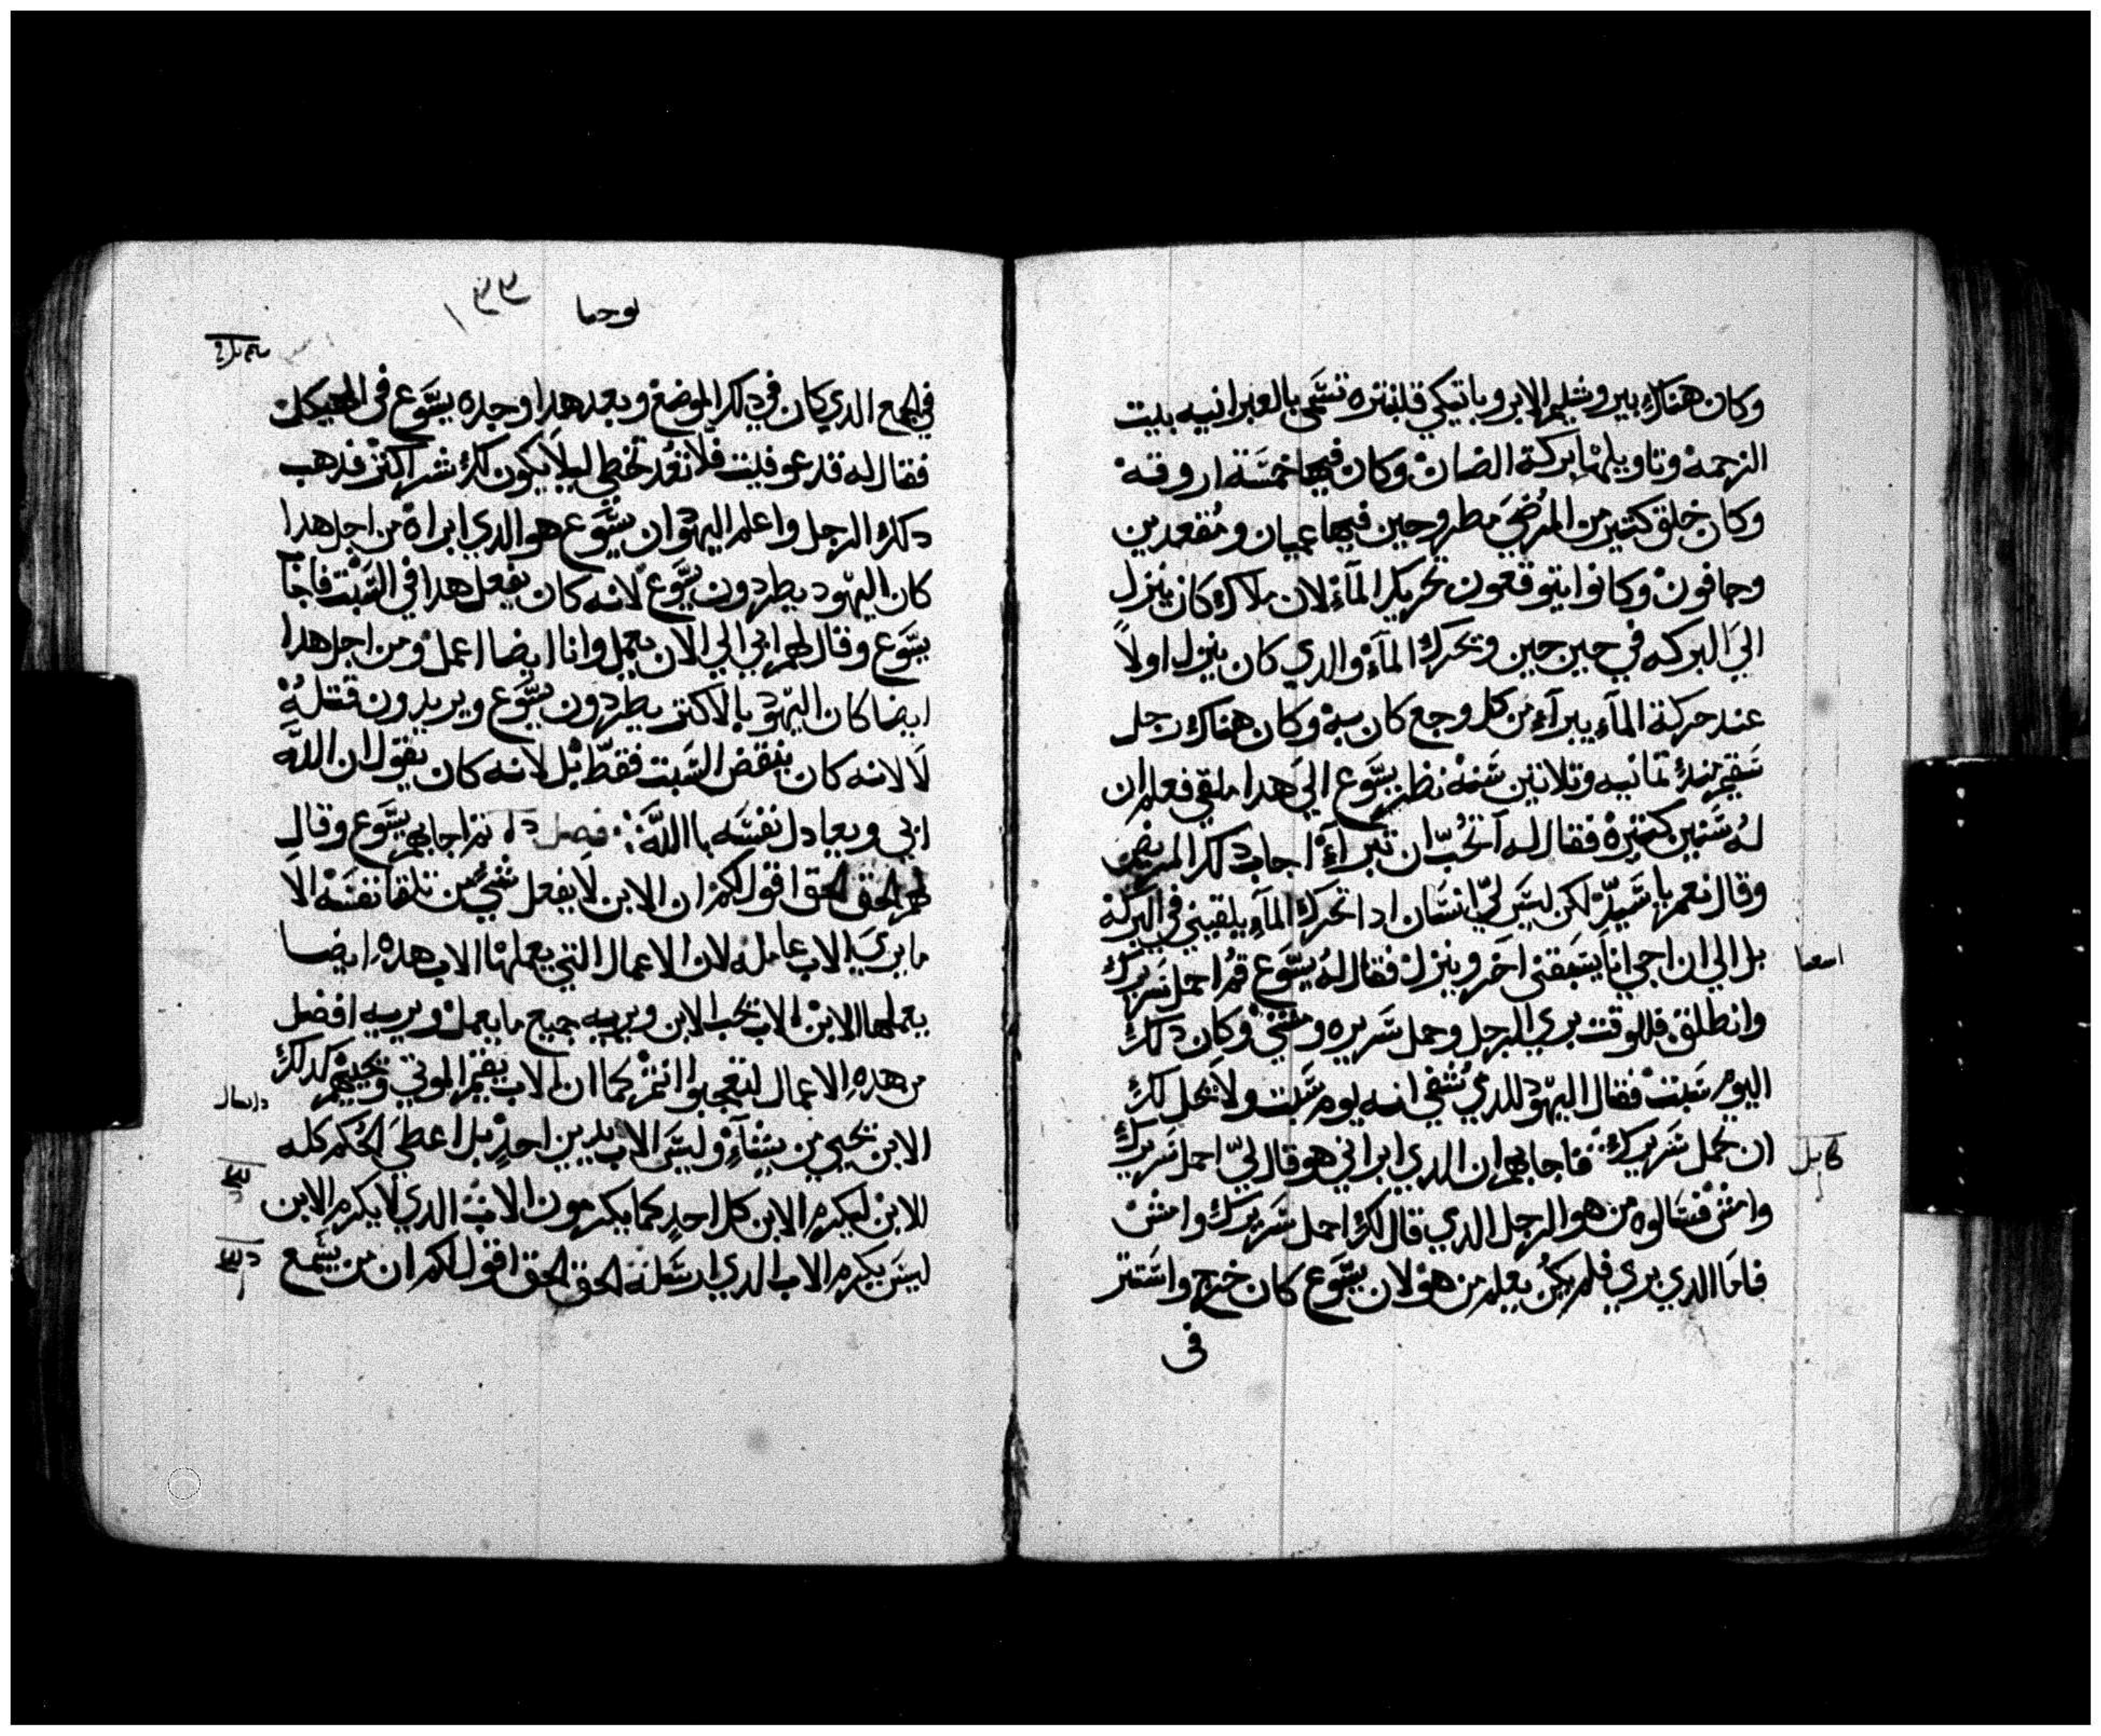 وكان هناك بيروشليم الابروباتيكي قلنبتره تسمى بالعبرانيه بيت
الرحمه وتاويلها بركة الضان وكان فيها خمسة اروقه
وكان خلق كتير من المرضي مطروحين فيها عميان ومقعدين
وجافون وكانوا يتوقعون تحريك المآء لان ملاك كان ينزل
الي البركه في حين حين وتحرك المآء والدي كان ينزل اولاً
عند حركة المآء يبرآء من كل وجع كان به وكان هناك رجل
سقيم منذ تمانيه وتلاتين سنه نظر يسوع الي هدا ملقي فعلم ان
له سنين كتيره فقال له آتحب ان تبرآء اجاب دلك المريض
وقال نعم يا سيد لكن ليس لي انسان ادا تحرك المآء يلقيني في البركه
بل الي ان اجي انا يسبقني اخر وينزل فقال له يسوع قم احمل سريرك
وانطلق فللوقت بري الرجل وحمل سريره ومشي وكان دلك
اليوم سبت فقال اليهود للدي شفي انه يوم سبت ولا يحل لك
ان تحمل سريرك فاجابهم ان الدي ابراني هو قال لي احمل سريرك
وامش فسالوه من هو الرجل الدي قال لك احمل سريرك وامش
فاما الدي بري فلم يكن يعلم من هو لان يسوع كان خرج واستتر
في
يوحنا ١٣٣
في الجمع الدي كان في دلك الموضع وبعد هدا وجده يسوع في الهيكل
فقال له قد عوفيت فلا تعد تخطي ليلا يكون لك شر اكتر فدهب
دلك الرجل واعلم اليهود ان يسوع هو الدي ابراه من اجل هدا
كان اليهود يطردون يسوع لانه كان يفعل هدا في السبت فاجآ
يسوع وقال لهم ابي الي الان يعمل وانا ايضا اعمل ومن اجل هدا
ايضا كان اليهود بالاكتر يطردون يسوع ويريدون قتله
لا لانه كان ينقض السبت فقط بل لانه كان يقول ان الله
ابي ويعادل نفسه باالله فصل تم اجابهم يسوع وقال
لهم الحق الحق اقول لكم ان الابن لا يفعل شي من تلقا نفسه الا
ما يري الاب عامله لان الاعمال التي يعملها الاب هده ايضا
يعملها الابن الاب يحب الابن ويريه جميع ما يعمل ويريه افضل
من هده الاعمال لتتعجبوا انتم كما ان الاب يقيم الموتي ويحييهم كدلك
الابن يحيي من يشآء وليس الاب يدين احد بل اعطي الحكم كله
للابن ليكرم الابن كل احد كما يكرمون الاب الدي لا يكرم الابن
ليس يكرم الاب الدي ارسله الحق الحق اقول لكم ان من يسمع